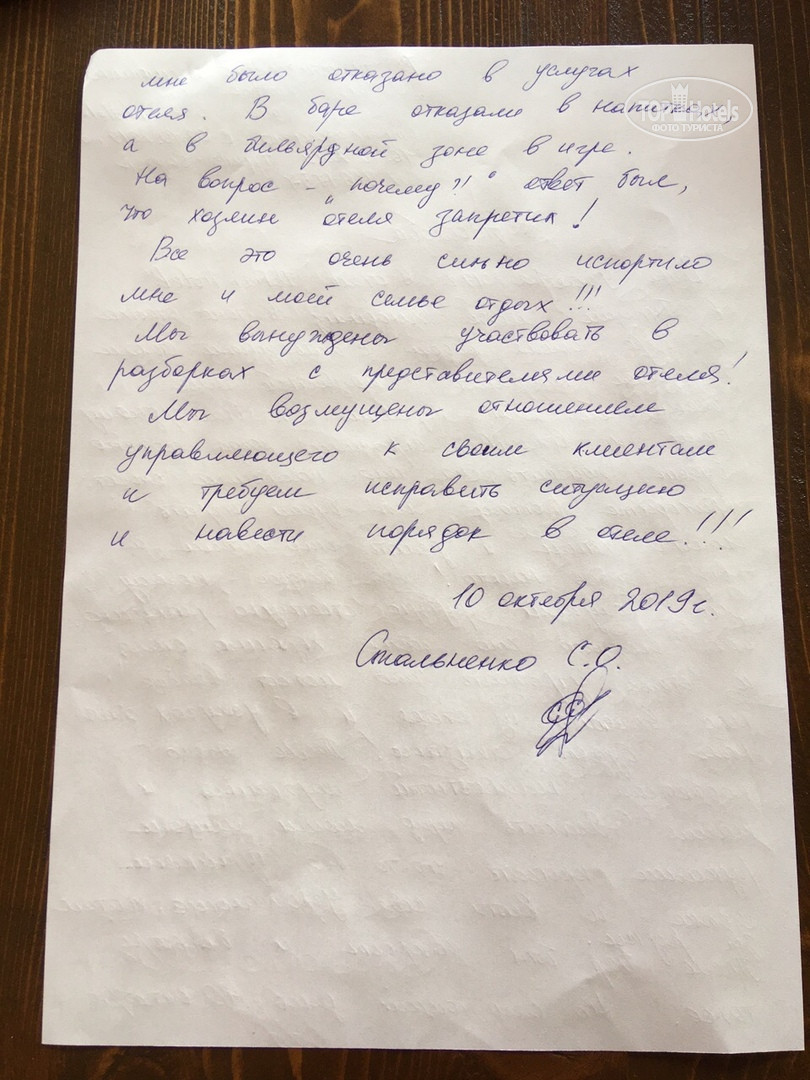 мне было отказано в услугах
отеля. В баре отказали в напитках,
а в бильярдной зоне в игре.
На вопрос - "почему?!" ответ был,
что хозяин отеля запретил!
Все это очень сильно испортило
мне и моей семье отдых!!!
Мы вынуждены участвовать в
разборках с представителями отеля!
Мы возмущены отношением
управляющего к своим клиентам
и требуем исправить ситуацию
и навести порядок в отеле!!!
10 октября 2019г.
Стальненко С.О.
TOP Hotels
ФОТО ТУРИСТА